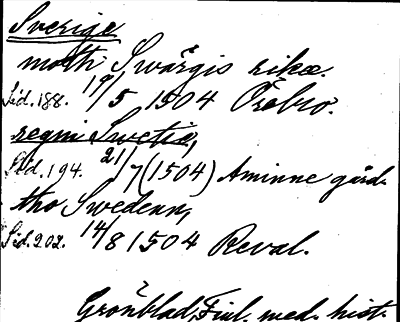 Sverige
moth Swärgis rike.
Sid. 188. 17/5 1504 Örebro.
regni Swetie,
Sid. 194. 21/7 (1504) Aminne gård.
tho Swedenn,
Sid. 202. 14/8 1504 Reval.
Grönblad, Finl. med. hist.